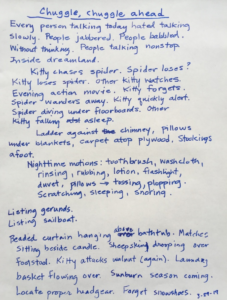 Chuggle, chuggle ahead
Every person talking today hated talking
slowly. People jabbered. People babbled.
Without thinking. People talking nonstop
Inside dreamland.
Kitty chases spider. Spider loses?
Kitty loses spider. Other kitty watches.
Evening action movie. Kitty forgets.
Spider wanders away. Kitty quickly alert.
Spider diving under floorboards. Other
Kitty falling asleep.
Ladder against chimney, pillows
under blankets, carpet atop plywood, Stockings
afoot.
Nighttime motions: toothbrush, washcloth,
rinsing, rubbing, lotion, flashlight,
duvet, pillows → tossing, plopping.
Scratching, sleeping, snoring.
Listing gerunds.
Listing sailboat.
Beaded curtain hanging bathtub. Matches
Sitting beside candle. Sheepskin drooping over
footstool. Kitty attacks walnut (again). Laundry
basket flowing over Sunburn season coming.
Locate proper headgear. Forget snowshoes.